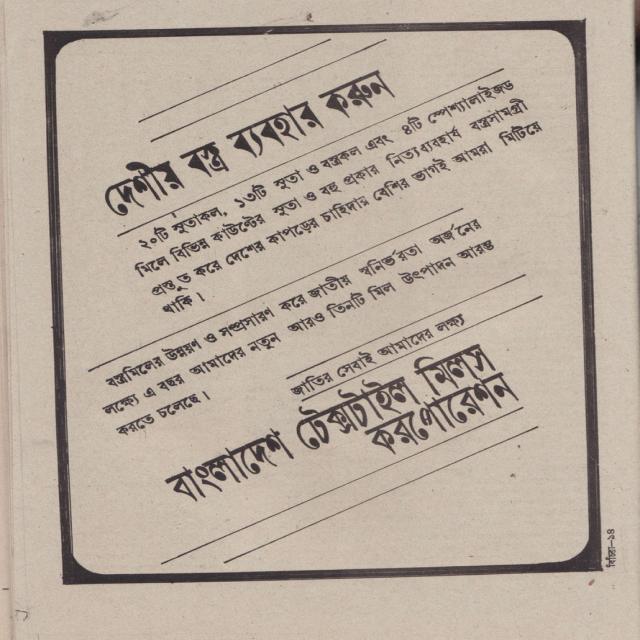 দেশীয় বস্ত্র ব্যবহার করুন
২০টি সুতাকল, ১৩টি সুতা ও বস্ত্রকল এবং ৪টি স্পেশ্যালাইজড
মিলে বিভিন্ন কাউন্টের সুতা ও বহু প্রকার নিত্যব্যবহার্য বস্ত্রসামগ্রী
প্রস্তুত করে দেশের কাপড়ের চাহিদার বেশির ভাগই আমরা মিটিয়ে
থাকি।
বস্ত্রমিলের উন্নয়ণ ও সম্প্রসারণ করে জাতীয় স্বনির্ভরতা অর্জনের
লক্ষ্যে এ বছর আমাদের নতুন আরও তিনটি মিল উৎপাদন আরম্ভ
করতে চলেছে।
জাতির সেবাই আমাদের লক্ষ্য
বাংলাদেশ টেক্সটাইল মিলস
করপোরেশন